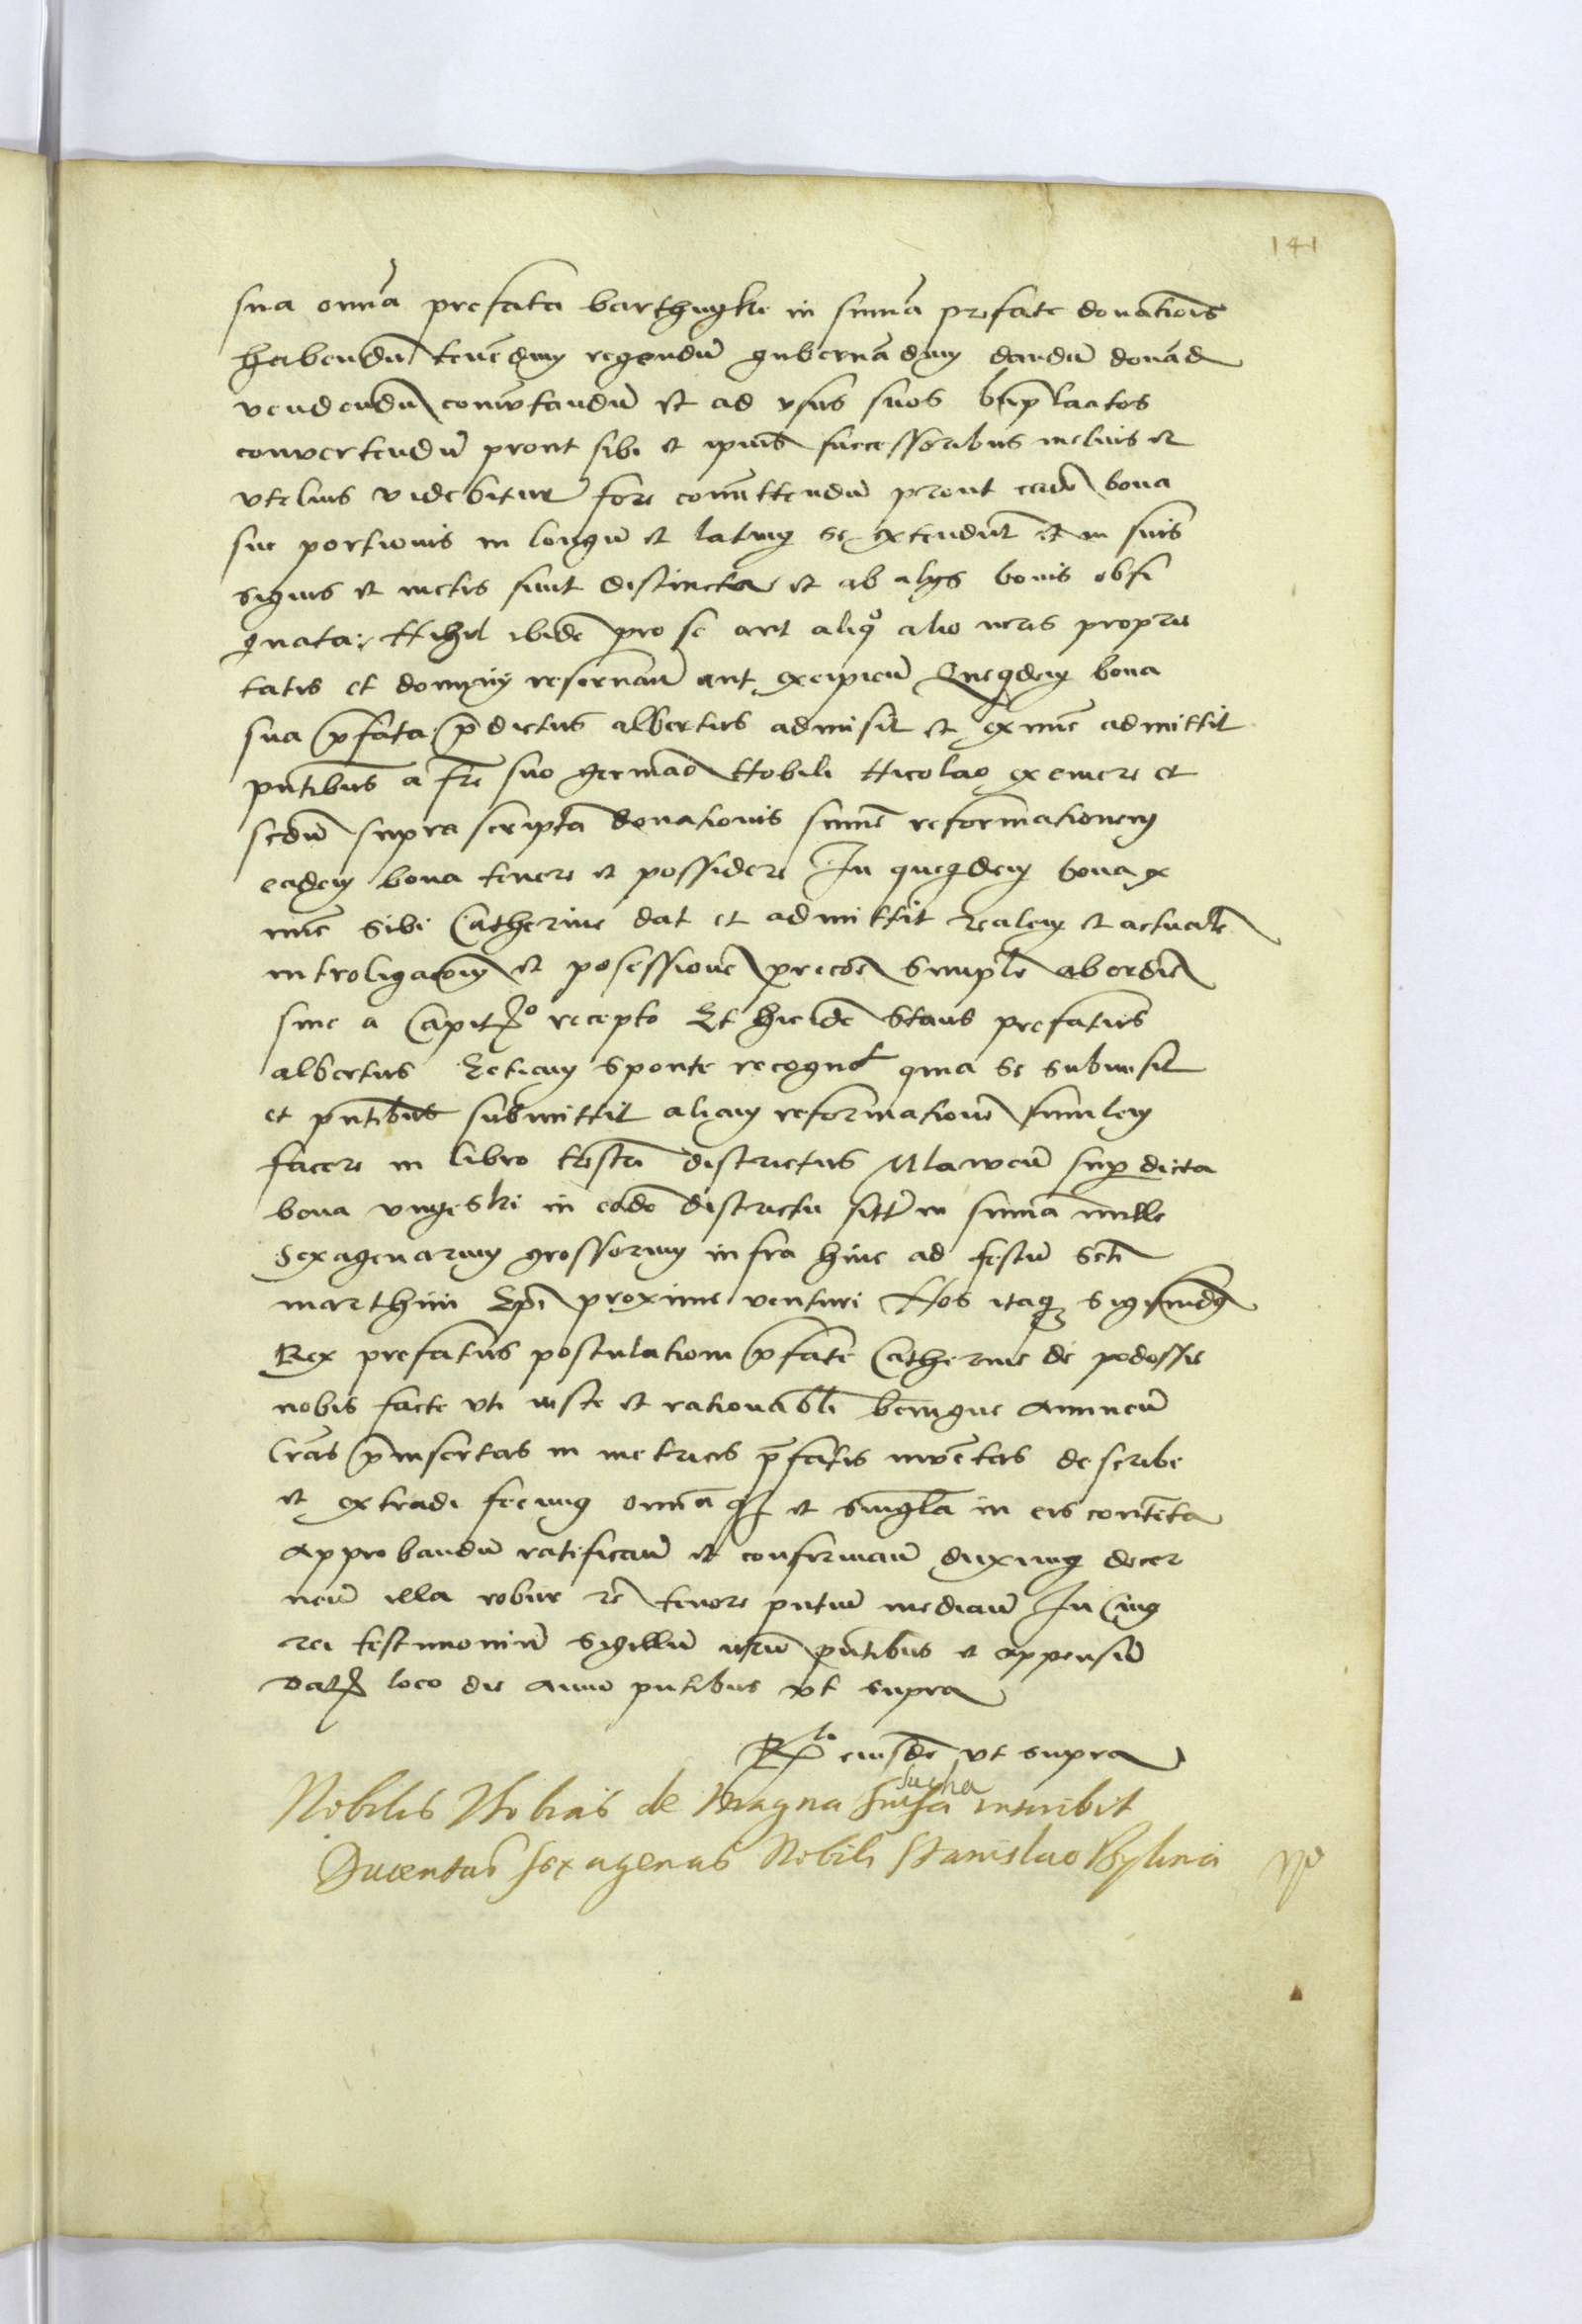 141
sua omnia prefata barthnyky in summa prefate donationis
habendum tenendum regendum gubernandum dandum donand
vendendum comutandum et ad vsus suos bnplacitos
convertendum prout sibi et ipius successoribus melius et
vtelius videbitur fore comittendum prout eadem bona
sue portionis in longum et latum se extendunt et in suis
signis et metis sunt distincta et ab alys bonis obsi
gnata: Nihil ibidem pro se aut aliquo alio iuris proprie
tatis et dominy reservan aut excipien Quequidem bona
sua prefata predictus albertus admisit et ex nunc admittit
pntibus a fre suo germano Nobili Nicolao exemere et
sedum supra scriptam donationis summe reformationem
eadem bona tenere et possidere In quequidem bona ex
nunc sibi Catherine dat et admittit realem et actualem
introligacionem et posessionem precone simplr ab ordine
sine a Capitno recepto Et hic idem Stans prefatus
albertus Eetiam sponte recognot quia se submisit
et pntibus submittit aliam reformationem similem
facere in libro trstri districtus Mlawen super dicta
bona vngeski in eodem districtu sitt in summa mille
Sexagenarum grossorum infra hinc ad festum Scti
marthini Epi proxime venturi Nos itaque Sigismundus
Rex prefatus postulationi prefate Catherine de podossie
nobis facte vti iuste et rationabli benigne annuen
lras preinsertas in metricis prefatis inventas describi
et extradi fecimus omniaque et singla in eis contenta
approbandum ratifican et confirman duximus decer
nen illa robur re tenore pntium median In Cuius
rei testimonium Sigillum nrum pntibus est appensum
Dat loco die anno pntibus vt supra
Rlo eiusdem vt supra
Nobilis Thobias de Magna Sucha inscribit
Ducentas sexagenas Nobili Stanislao Bylina